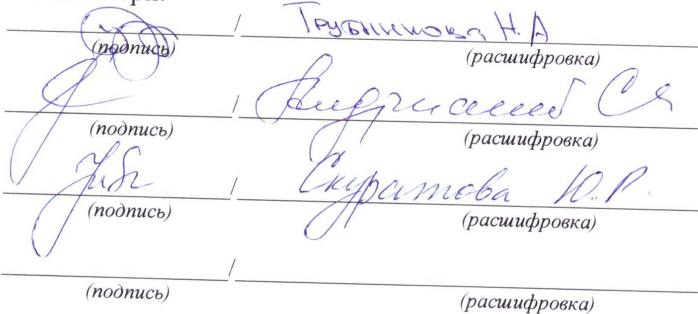 / Трубникова Н.А
(подпись) (расшифровка)
/ С Я
(подпись) (расшифровка)
/ Скуратова Ю.Р.
(подпись) (расшифровка)
/
(подпись) (расшифровка)